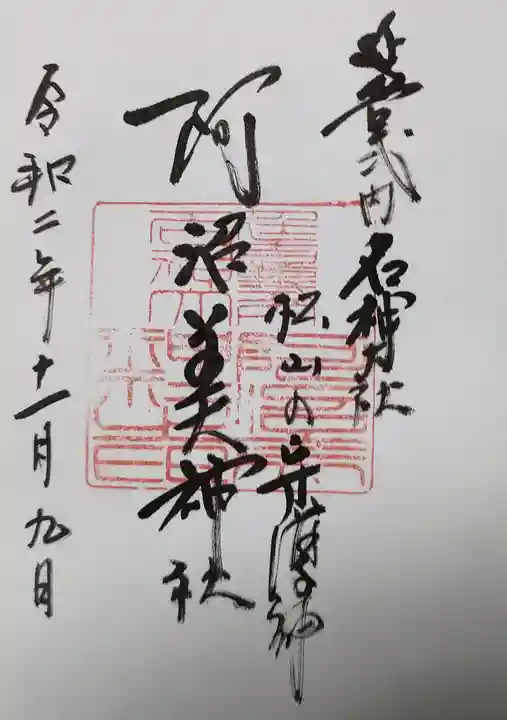 延喜式内名神大社
松山の守護神
阿沼美神社
令和二年十一月九日